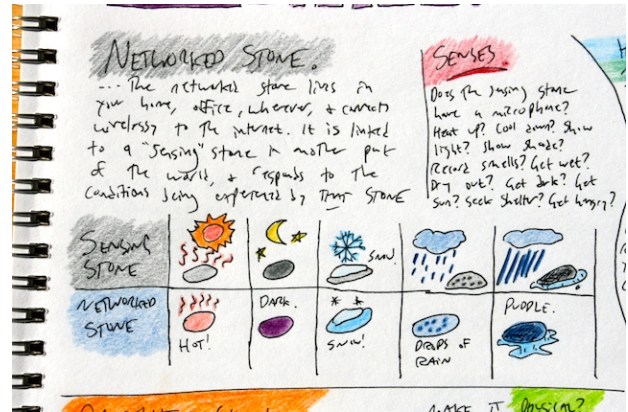 NETWORKED STONE.
... The networked stone lives in
your home, office, wherever, & connects
wirelessly to the internet. It is linked
to a "sensing" stone in another part
of the world, & responds to the
conditions being experienced by THAT STONE
SENSES
Does the sensing stone
have a microphone?
Heat up? Cool down? Show
light? Show shade?
Record smells? Get wet?
Dry out? Get dark? Get
sun? Seek shelter? Get hungry?
SENSING
STONE
SNOW.
NETWORKED
STONE
HOT!
DARK.
SNOW!
DROPS OF
RAIN
PUDDLE.
MAKE IT PHYSICAL?